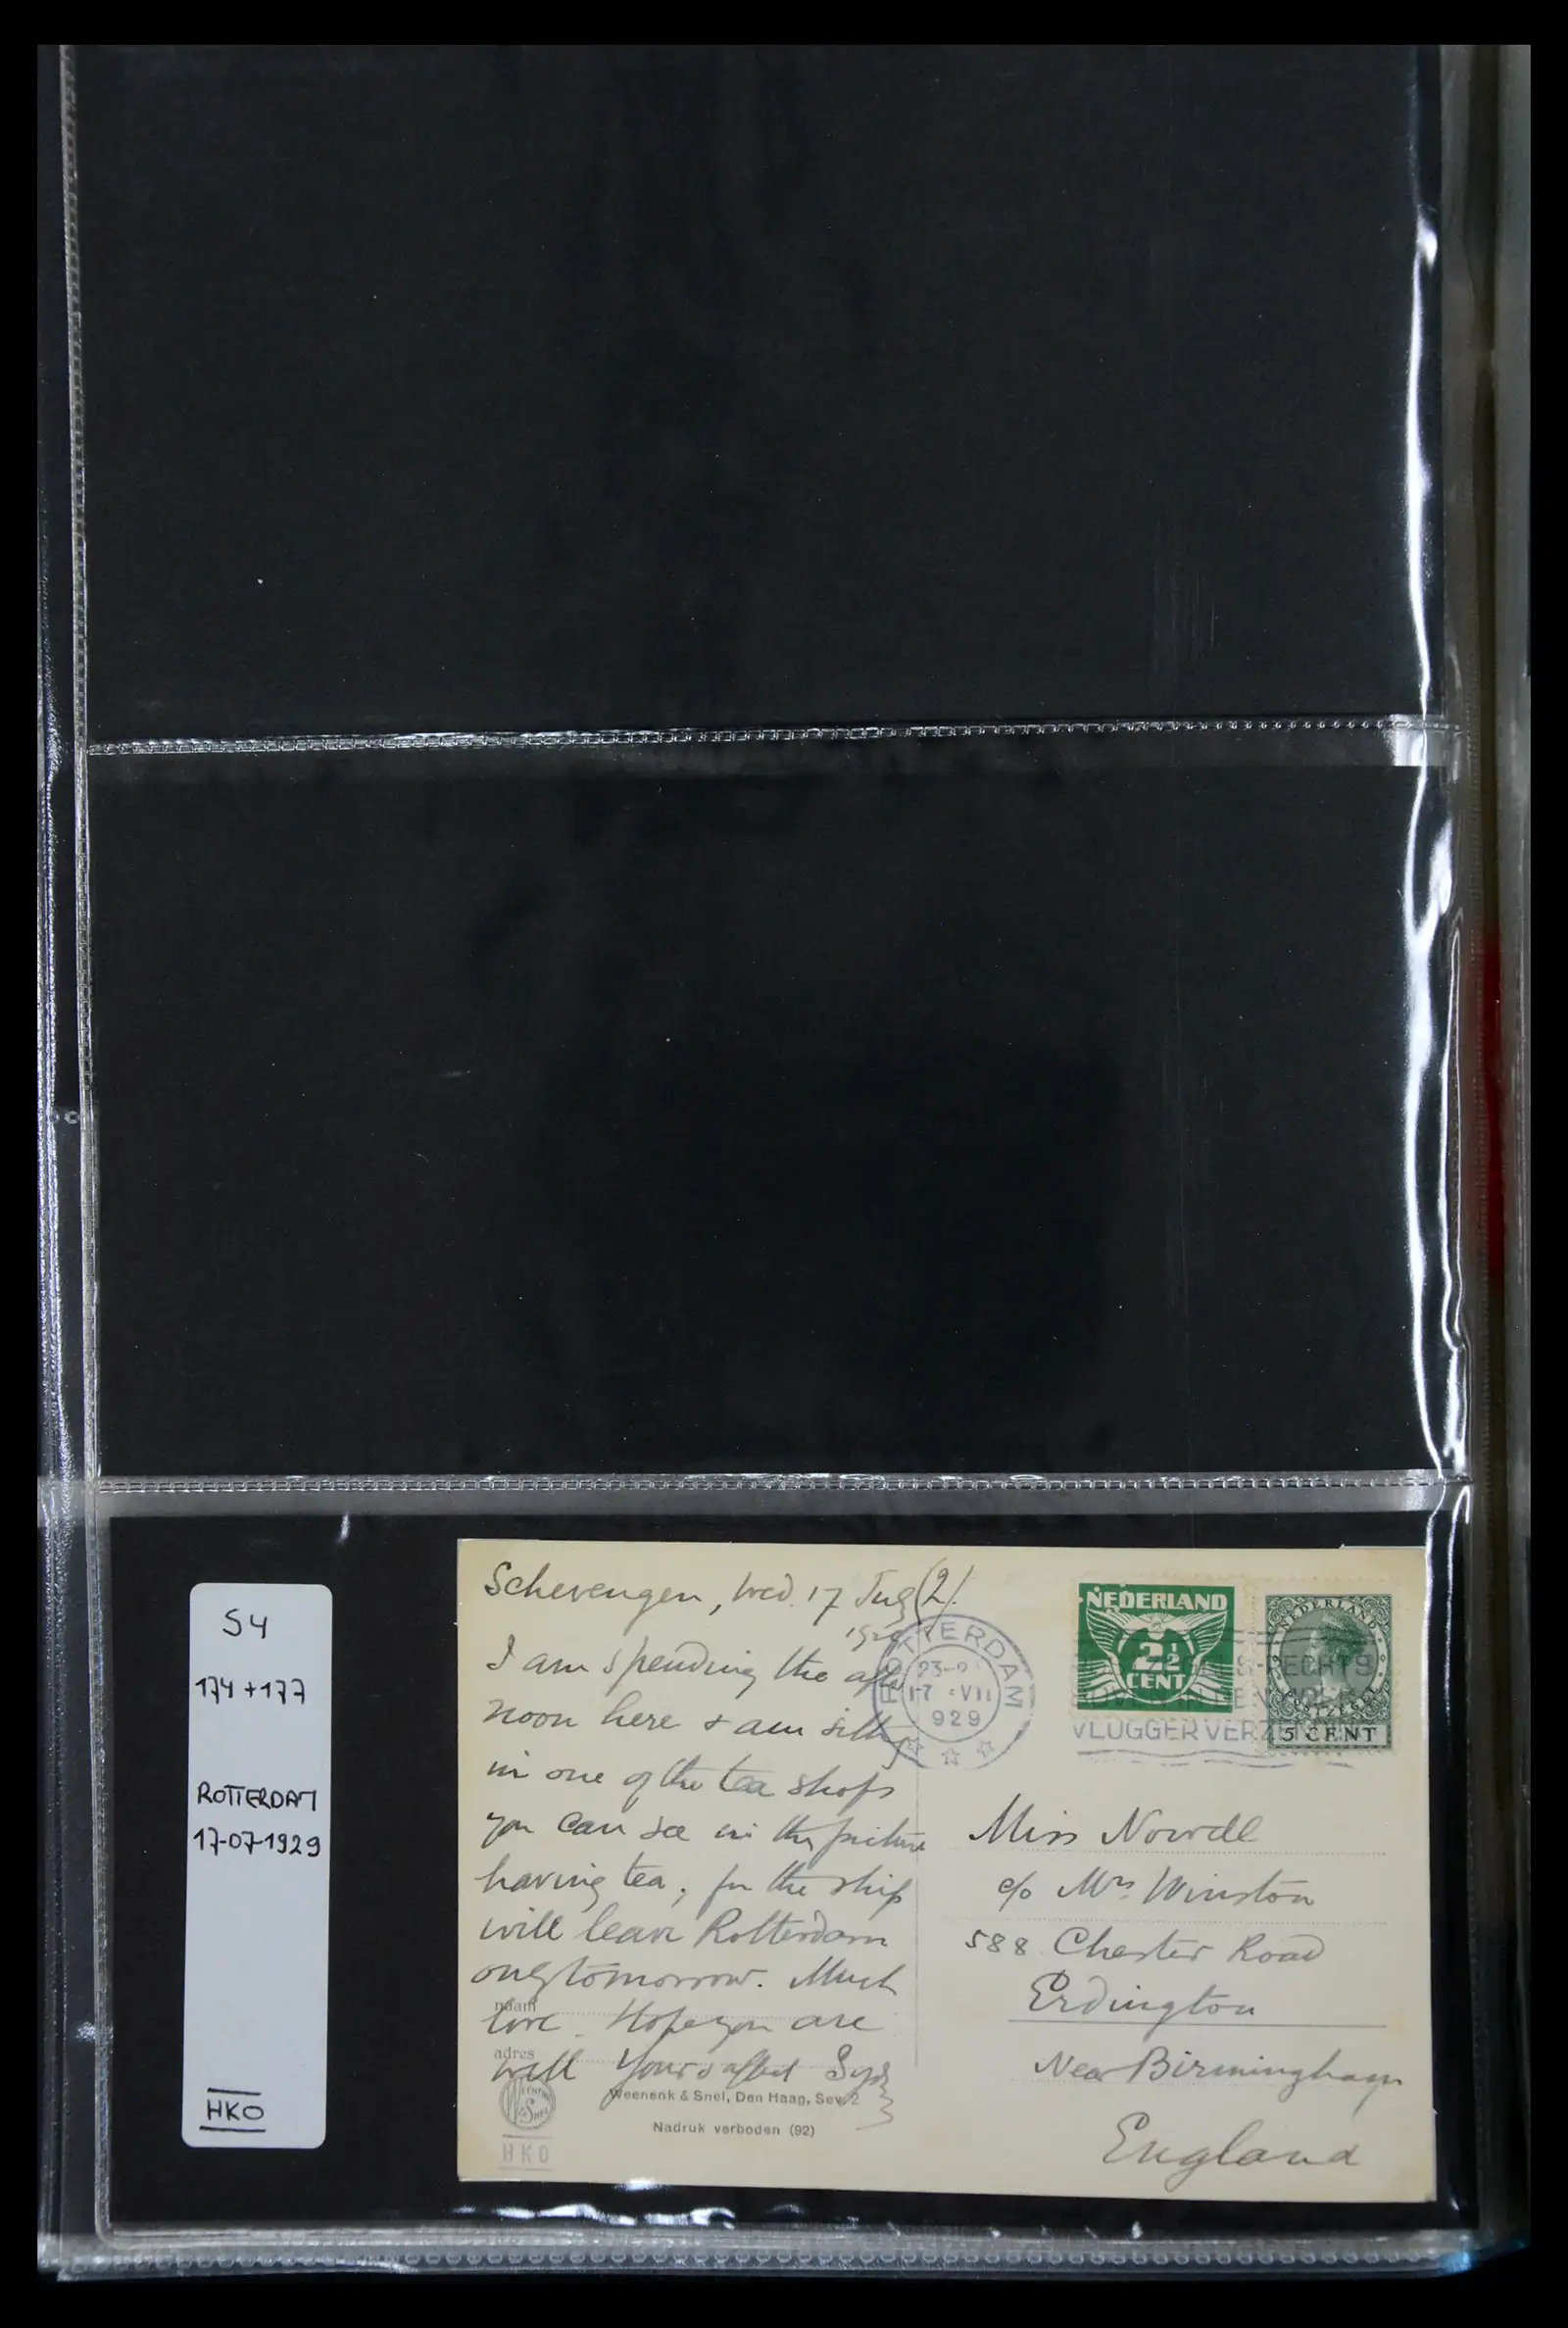 S4
174 + 177
ROTTERDAM
17-07-1929
HKO
Schevengen, Wed. 17 July (2).
1929
I am spending the after
noon here & am sitting
in one of the tea shops
you can see in the picture
having tea, for the ship
will leave Rotterdam
only tomorrow. Much
love. Hope you are
well Yours affect
naam
adres
Weenenk & Snel, Den Haag, Sev. 2
Nadruk verboden (92)
HKO
ROTTERDAM
23-
17 VII
929
NEDERLAND
2½
CENT
NEDERLAND
5 CENT
VLUGGER VERZENDING
Miss Nowell
c/o Mrs. Winston
588 Chester Road
Erdington
Near Birmingham
England